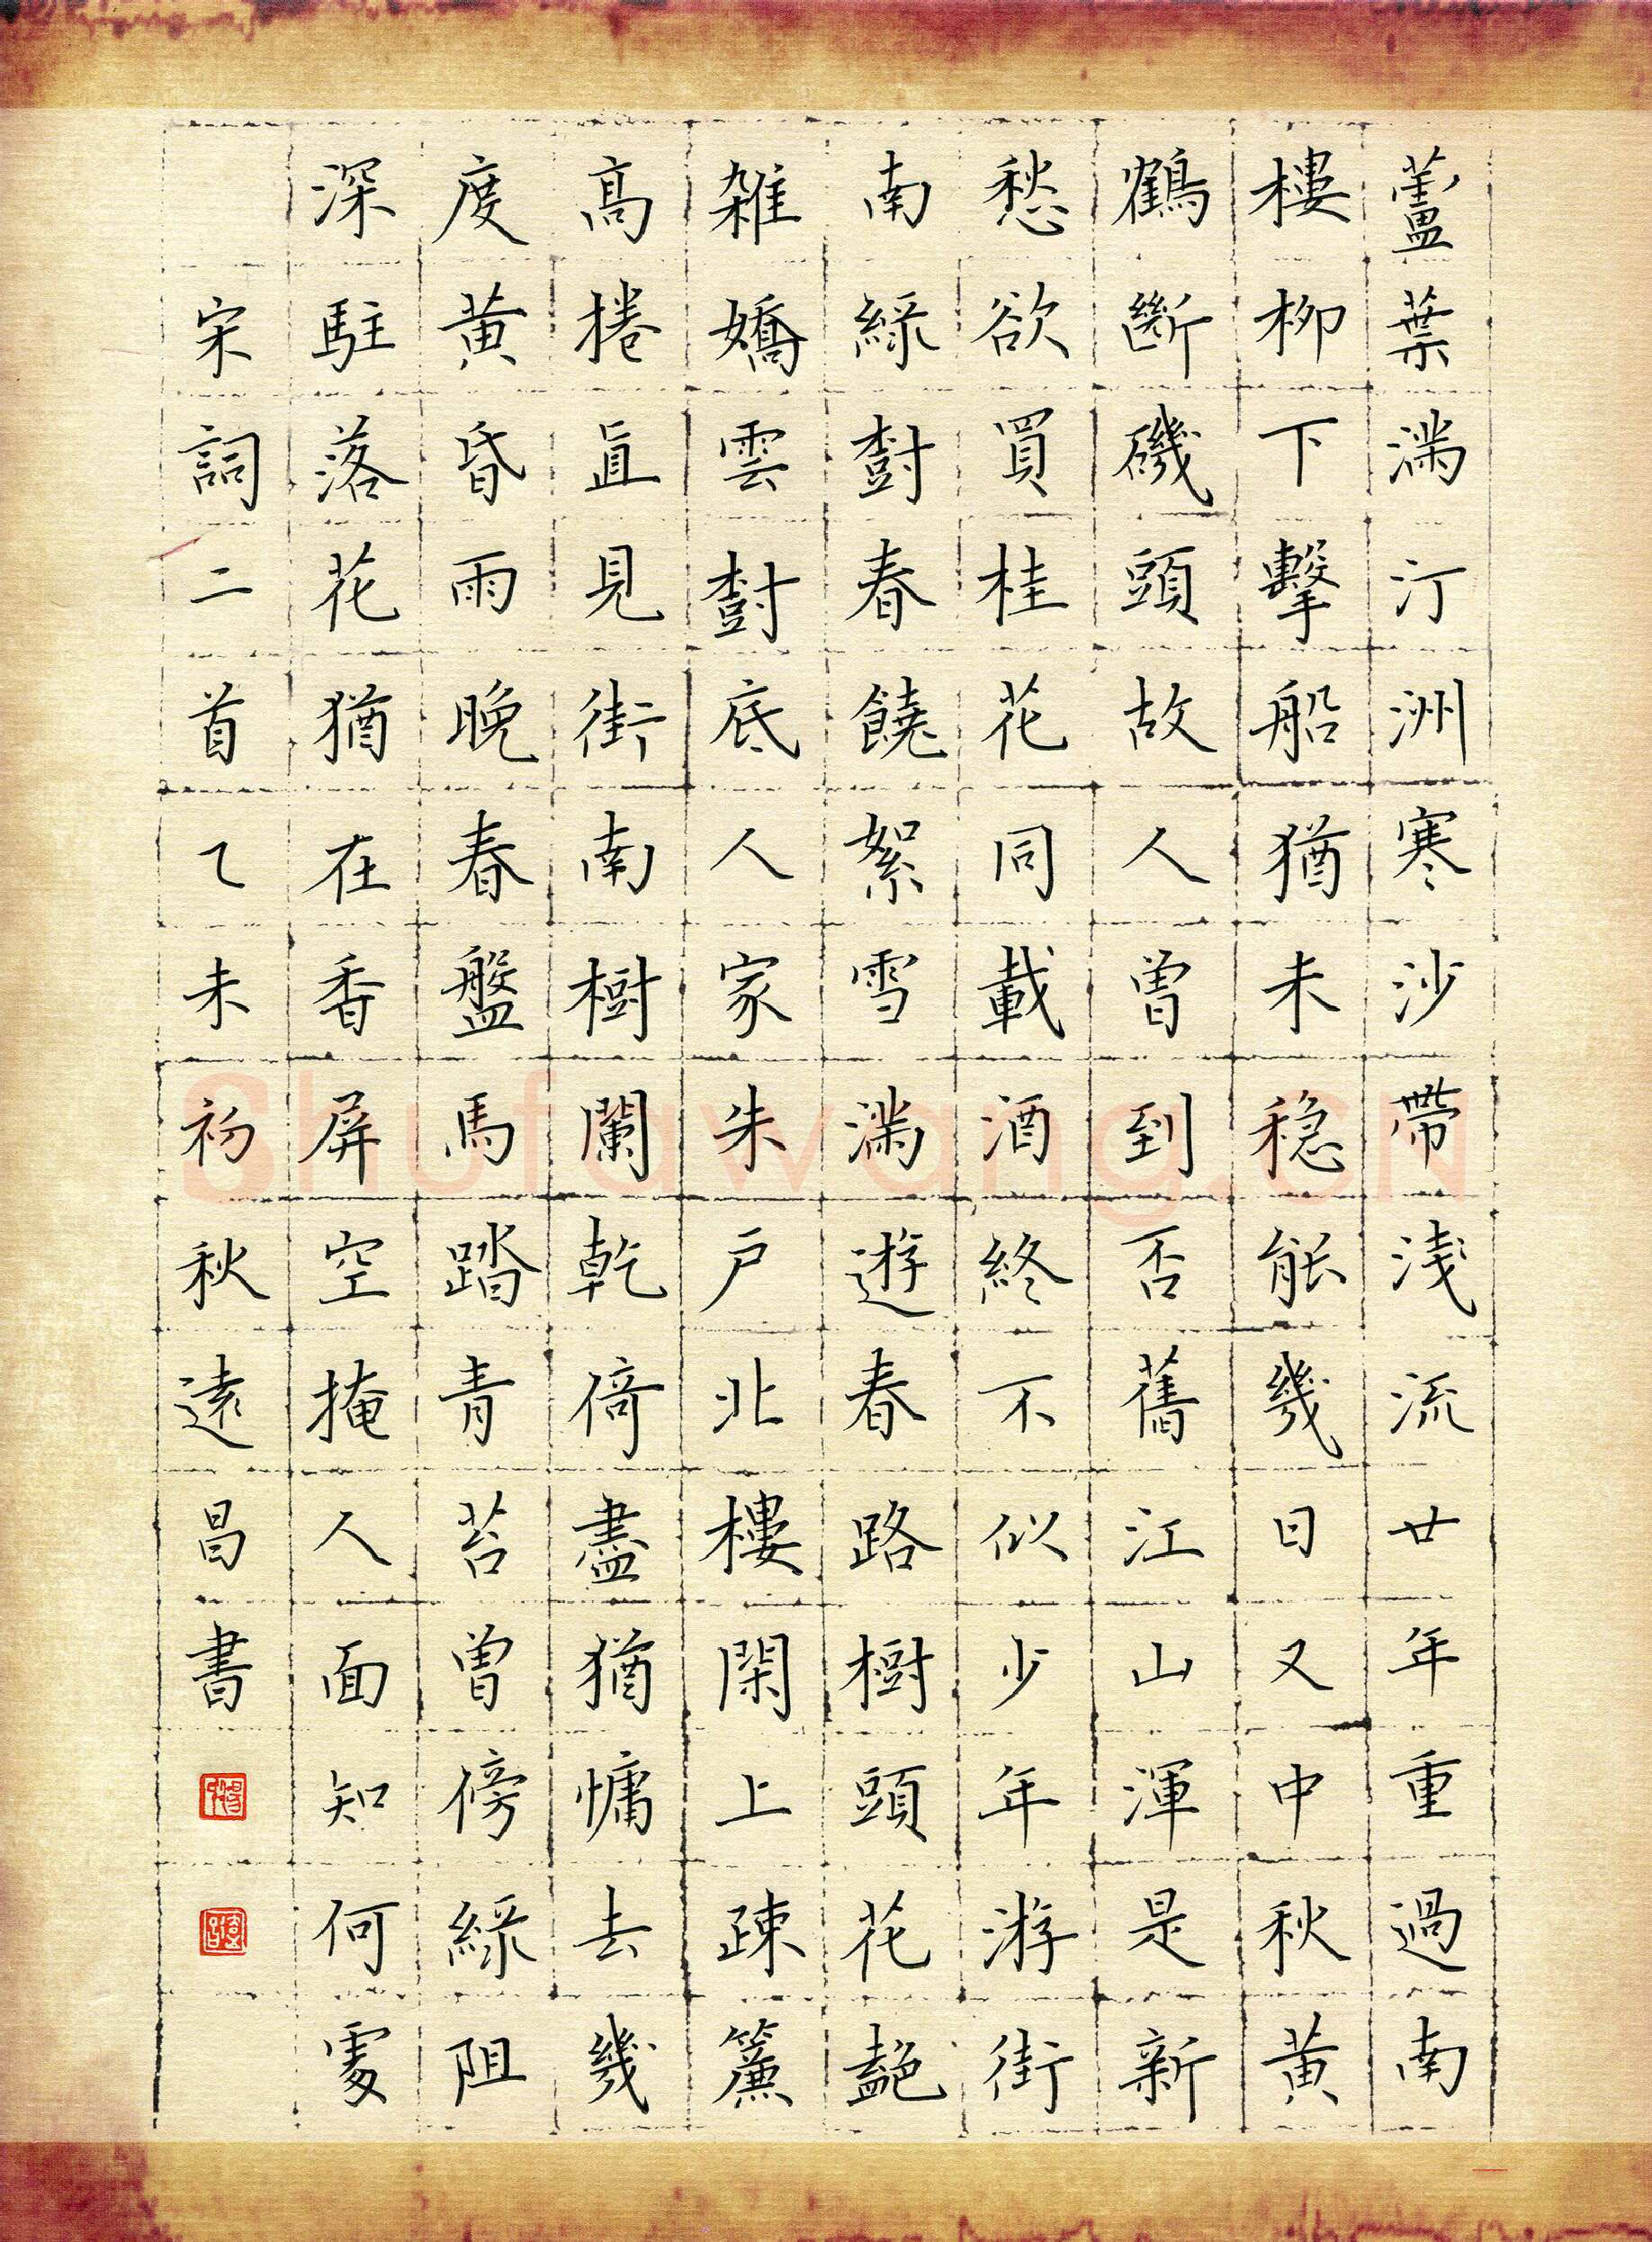 蘆葉滿汀洲寒沙帶淺流廿年重過南
樓柳下擊船猶未穏能幾日又中秋黃
鶴斷磯頭故人曾到否舊江山渾是新
愁欲買桂花同載酒終不似少年游街
南綠樹春饒絮雪滿遊春路樹頭花艷
雜嬌雲樹底人家朱戶北樓閑上疎簾
高捲直見街南樹闌乾倚盡猶慵去幾
度黃昏雨晚春盤馬踏青苔曾傍綠阻
深駐落花猶在香屏空掩人面知何處
宋詞二首乙未初秋遠昌書
Shufawang.cn